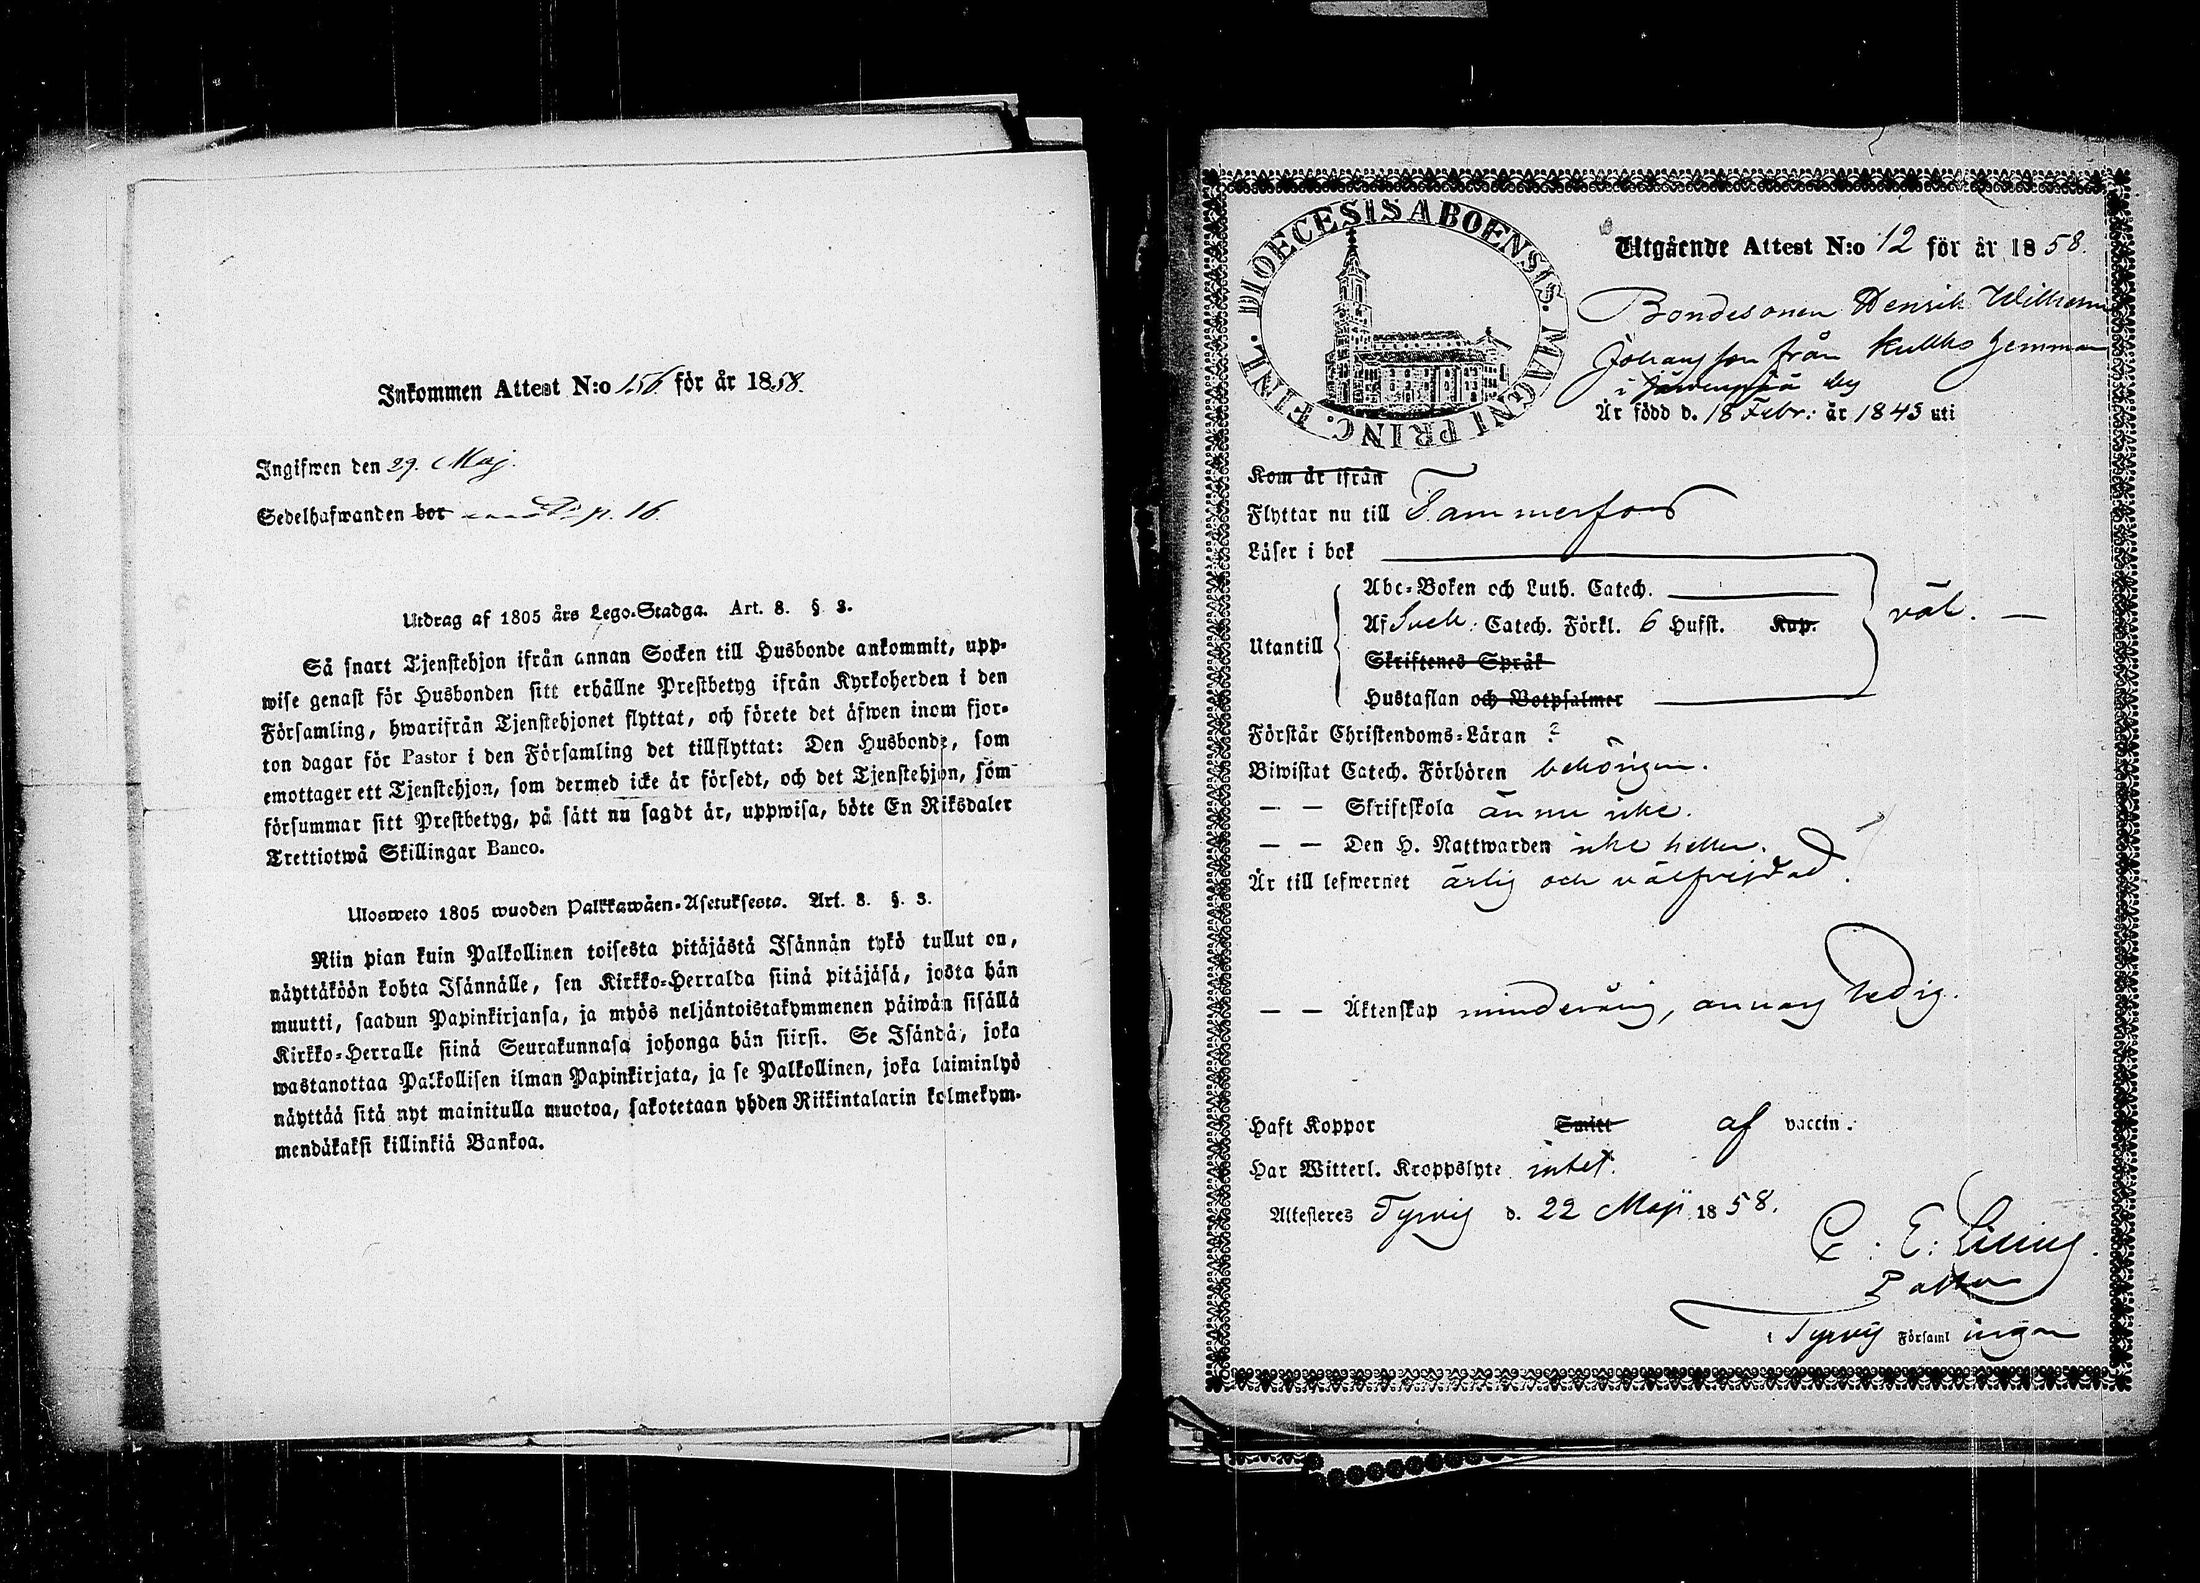 Inkommen Attest N:o 156 för år 1858.
Ingifwen den 29. Maj.
Sedelhafwanden bor p. 16.
Utdrag af 1805 års Lego-Stadga. Art. 8. § 3.
Så snart Tjenstehjon ifrån annan Socken till Husbonde ankommit, upp-
wise genast för Husbonden sitt erhållne Prestbetyg ifrån Kyrkoherden i den
Församling, hwarifrån Tjenstehjonet flyttat, och förete det äfwen inom fjor-
ton dagar för Pastor i den Församling det tillflyttat: Den Husbonde, som
emottager ett Tjenstehjon, som dermed icke är försedt, och det Tjenstehjon, som
försummar sitt Prestbetyg, på sätt nu sagdt är, uppwisa, böte En Riksdaler
Trettiotwå Skillingar Banco.
Ulosweto 1805 wuoden Palkkawäen-Asetuksesta. Art. 8. §. 3.
Niin pian kuin Palkollinen toisesta pitäjästä Isännän tykö tullut on,
näyttäköön kohta Isännälle, sen Kirkko-Herralda siinä pitäjäsä, josta hän
muutti, saadun Papinkirjansa, ja myös neljäntoistakymmenen päiwän sisällä
Kirkko-Herralle siinä Seurakunnasa johonga hän siirsi. Se Isändä, joka
wastanottaa Palkollisen ilman Papinkirjata, ja se Palkollinen, joka laiminlyö
näyttää sitä nyt mainitulla muotoa, sakotetaan yhden Riikintalarin kolmekym-
mendäkaksi killinkiä Bankoa.
DIOECESIS ABOENSIS. MAGNI PRINC. FINL.
Utgående Attest N:o 12 för år 1858.
Bondesonen Henrik Wilhelm
Johansson från Kulkko hemman
i Järvenpää by
Är född d. 18 Febr: år 1843 uti
Kom år ifrån
Flyttar nu till Tammerfors
Läser i bok
Abc-Boken och Luth. Catech.
Af Sveb: Catech. Förkl. 6 Hufst. Kap.
väl.
Utantill
Skriftenes Språk
Hustaflan och Botpsalmer
Förstår Christendoms-Läran ?
Biwistat Catech. Förhören behörigen.
— — Skriftskola ännu icke.
— — Den H. Nattwarden icke heller.
Är till lefwernet ärlig och välfrejdad.
— — Äktenskap minderårig, annars ledig.
Haft Koppor Smitt af vaccin.
Har Witterl. Kroppslyte intet.
Attesteres Tyrvis d. 22 Maji 1858.
Pastor
i Tyrvis Församlingen